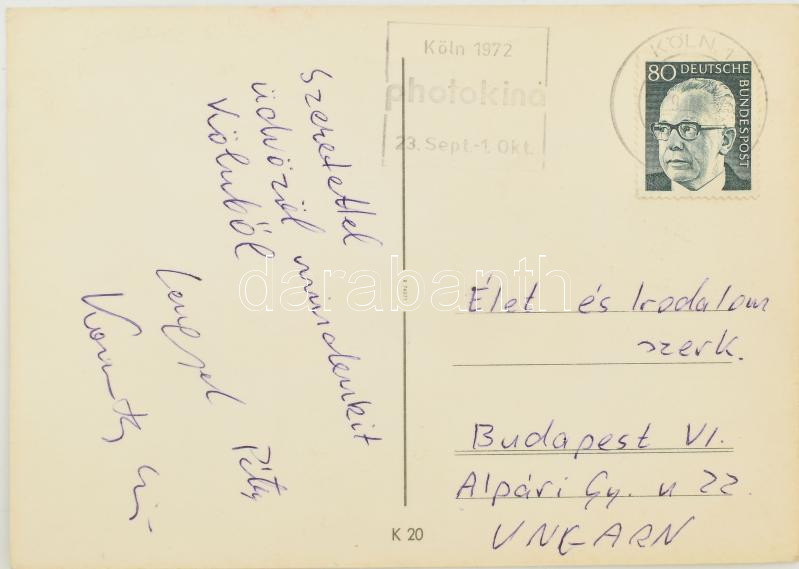 Szeretettel
üdvözöl mindenkit
Kölnből
Lengyel Péter
Köln 1972
photokina
23. Sept.-1. Okt.
KÖLN 1
80 DEUTSCHE
BUNDESPOST
darabanth
Élet és Irodalom
szerk.
Budapest VI.
Alpári Gy. u 22.
UNGARN
K 20